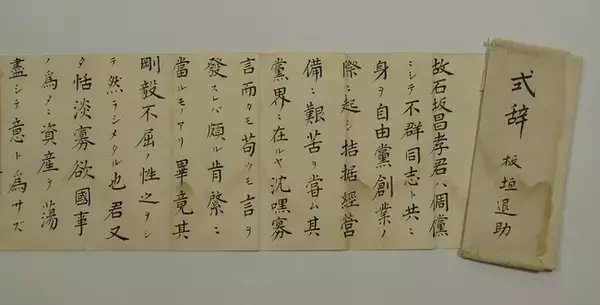 式辞
板垣退助
故石坂昌孝君ハ倜儻
ニシテ不群同志ト共ニ
身ヲ自由黨創業ノ
際ニ起シ拮据經營
備ニ艱苦ヲ嘗ム其
黨界ニ在ルヤ沈嘿寡
言而カモ苟クモ言ヲ
發スレバ頗ル肯綮ニ
當ルモノアリ畢竟其
剛毅不屈ノ性之ヲシ
テ然ラシメタル也君又
タ恬淡寡欲國事
ノ爲メニ資産ヲ蕩
盡シテ意ト爲サズ